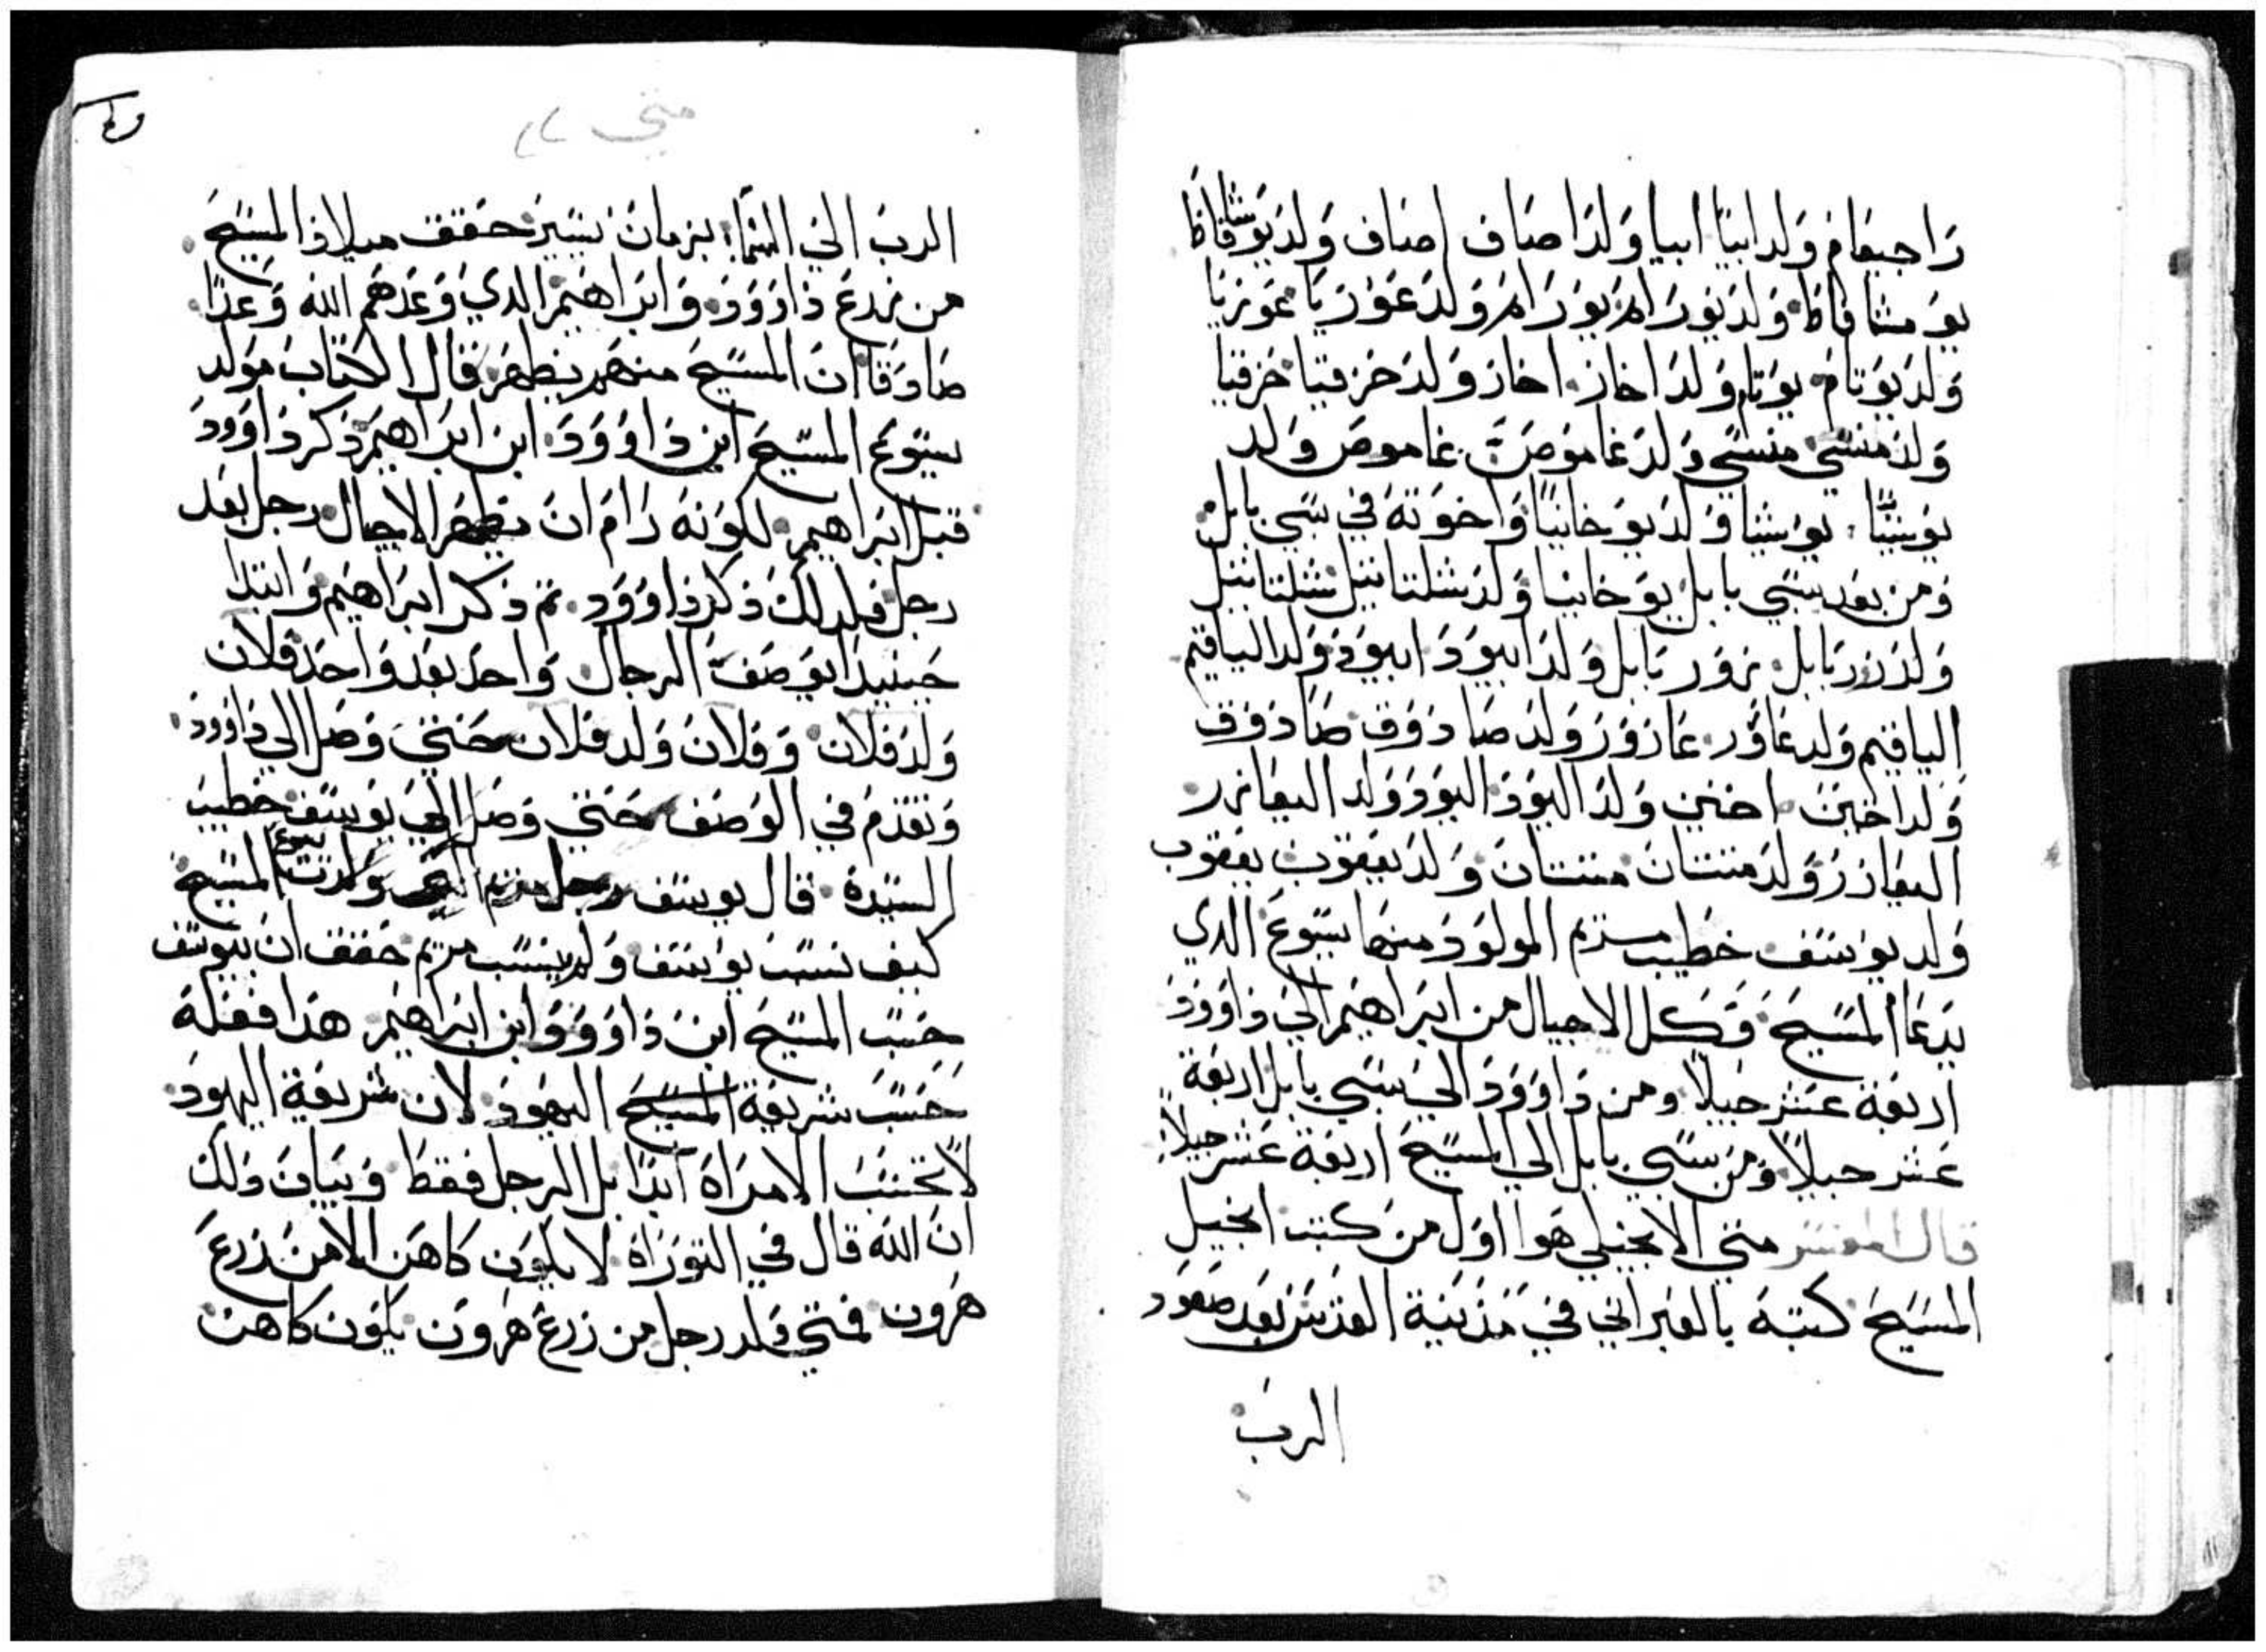 راجبعام ولد ابيا ابيا ولد اصاف اصاف ولد يوشافاط
يوشافاط ولد يورام يورام ولد عوزيا عوزيا
ولد يوتام يوتام ولد اخاز اخاز ولد حزقيا حزقيا
ولد منسي منسي ولد غاموص غاموص ولد
يوشيا يوشيا ولد يوخانيا واخوته في سبي بابل
ومن بعد سبي بابل يوخانيا ولد شلتائيل شلتائيل
ولد زربابل زوربابل ولد ابيود ابيود ولد الياقيم
الياقيم ولد عازور عازور ولد صادوق صادوق
ولد اخين اخين ولد اليود اليود ولد اليعازر
اليعازر ولد منتتان منتتان ولد يعقوب يعقوب
ولد يوسف خطيب مريم المولود منها يسوع الدي
يدعا المسيح وكل الاجيال من ابراهيم الي داوود
اربعة عشر جيلا ومن داوود الي سبي بابل اربعة
عشر جيلا ومن سبي بابل الي المسيح اربعة عشر جيلا
قال المفسر متي الانجيلي هوا اول من كتب انجيل
المسيح كتبه بالعبراني في مدينة القدس بعد صعود
الرب
متي
الرب الي السما بزمان يسير حقق ميلاد المسيح
من زرع داوود وابراهيم الدي وعدهم الله وعدا
صادقا ان المسيح منهم يظهر قال الكتاب مولد
يسوع المسيح ابن داوود ابن ابراهيم ذكر داوود
قبل ابراهيم لكونه رام ان يظهر الاجيال رجل بعد
رجل فلدلك ذكر داوود تم ذكر ابراهيم وابتدا
حينيد ابوصف الرجال واحد بعد واحد فلان
ولد فلان وفلان ولد فلان حتي وصل الي داوود
وتقدم في الوصف حتي وصل الي يوسف خطيب
السيدة قال يوسف رجل مريم التي ولدت يسوع المسيح
كيف نسب يوسف ولم ينسب مريم حقق ان بيوسف
حسب المسيح ابن داوود وابن ابراهيم هدا فعله
حسب شريعة المسيح اليهود لان شريعة اليهود
لا تحسب الامراة ابدا بل الرجل فقط وبيان دلك
ان الله قال في التوراة لا يكون كاهن الا من زرع
هرون فمتي ولد رجل من زرع هرون يكون كاهن